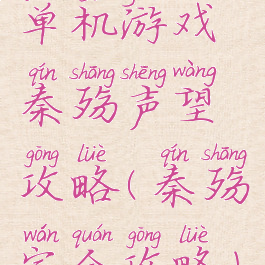 单机游戏
qín shāng shēng wàng
秦殇声望
gōng lüè qín shāng
攻略(秦殇
wán quán gōng lüè
完全攻略)